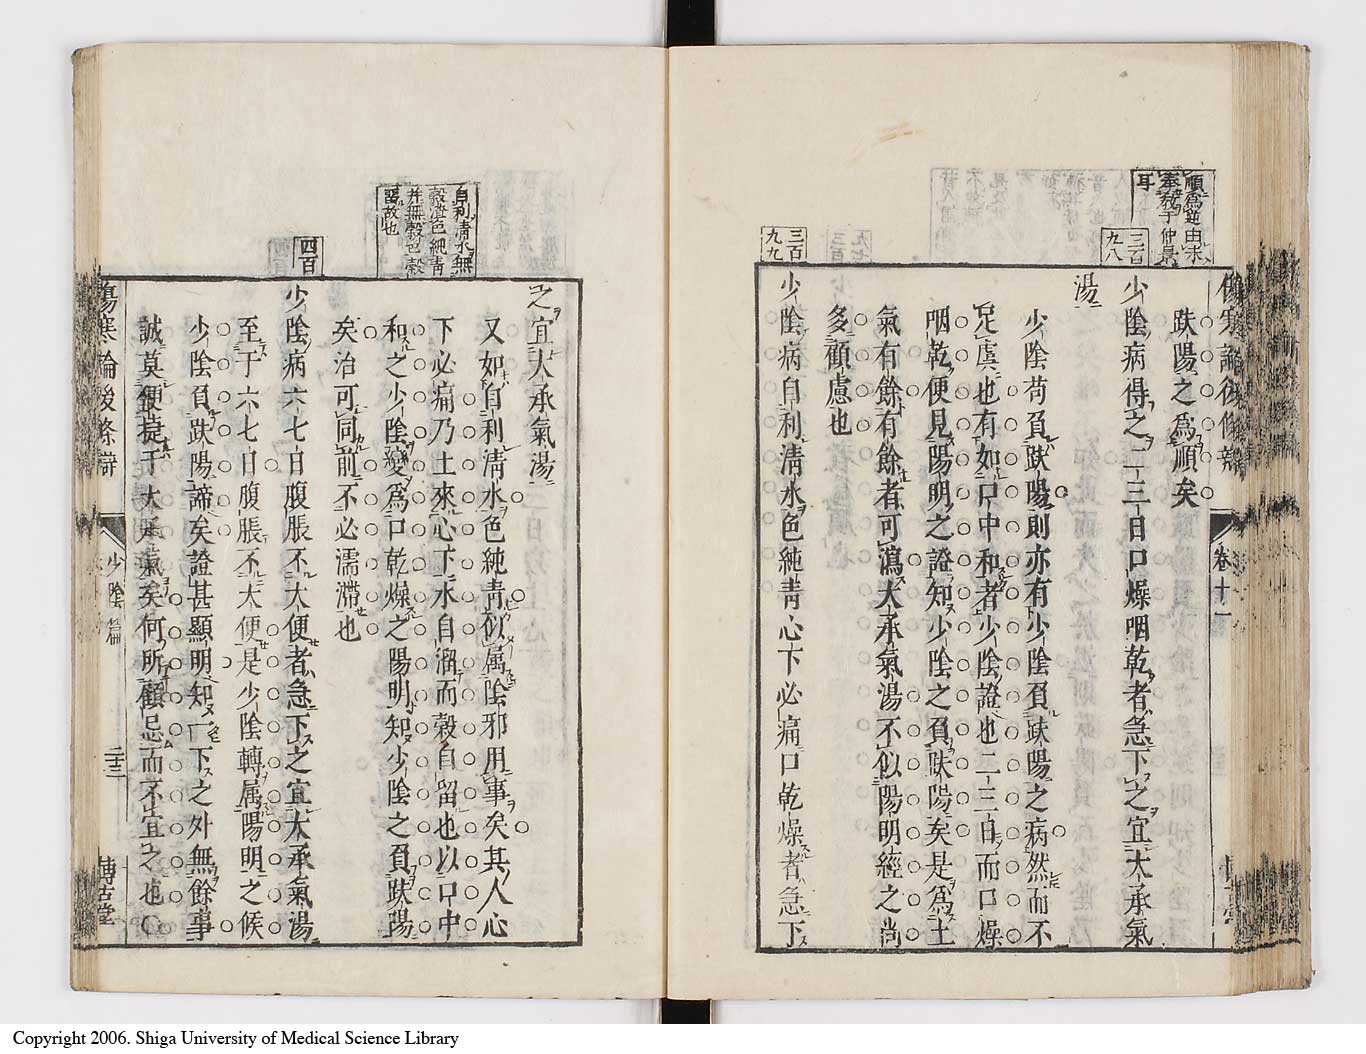 順為逆由未
奉教于仲景
耳
三百
九八
三百
九九
傷寒論後條辯
卷十一
趺陽之為順矣
少陰病得之二三日口燥咽乾者急下之宜大承氣
湯
少陰苟負趺陽則亦有少陰負趺陽之病然而不
足虞也有如口中和者少陰證也二三日而口燥
咽乾便見陽明之證知少陰之負趺陽矣是為土
氣有餘有餘者可瀉大承氣湯不似陽明經之尚
多顧慮也
少陰病自利清水色純青心下必痛口乾燥者急下
自利清水無
穀渣色純青
并無穀色穀
留故也
四百
之宜大承氣湯
又如自利清水色純青似属陰邪用事矣其人心
下必痛乃土來心下水自溜而穀自留也以口中
和之少陰變為口乾燥之陽明知少陰之負趺陽
矣治可同前不必濡滯也
少陰病六七日腹脹不大便者急下之宜大承氣湯
至于六七日腹脹不大便是少陰轉属陽明之候
少陰負趺陽諦矣證甚顯明知一下之外無餘事
誠莫便捷于大承氣矣何所顧忌而不宜之也
傷寒論後條辯
少陰篇
二十三
博古堂
Copyright 2006. Shiga University of Medical Science Library